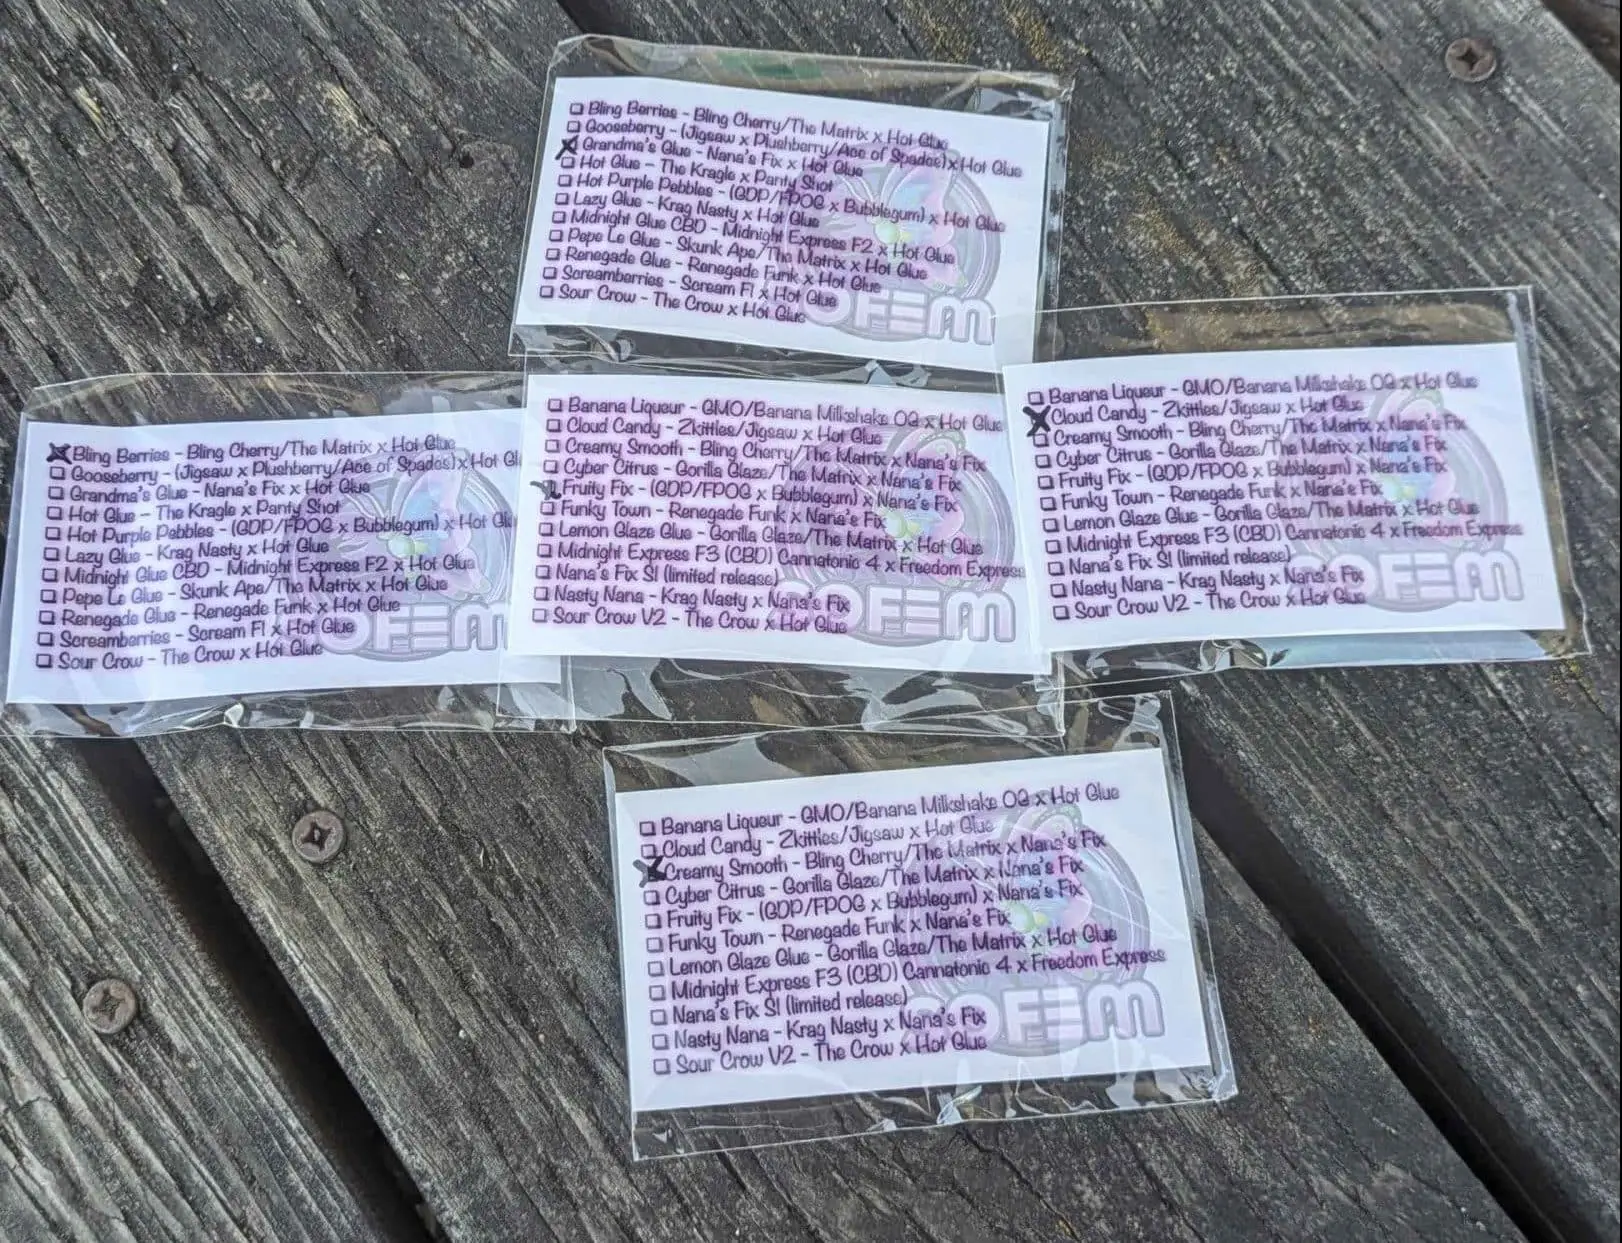 ❏ Bling Berries - Bling Cherry/The Matrix x Hot Glue
❏ Gooseberry - (Jigsaw x Plushberry/Ace of Spades) x Hot Glue
❏ Grandma's Glue - Nana's Fix x Hot Glue
❏ Hot Glue - The Kragle x Panty Shot
❏ Hot Purple Pebbles - (GDP/FPOG x Bubblegum) x Hot Glue
❏ Lazy Glue - Krag Nasty x Hot Glue
❏ Midnight Glue CBD - Midnight Express F2 x Hot Glue
❏ Pepe Le Glue - Skunk Ape/The Matrix x Hot Glue
❏ Renegade Glue - Renegade Funk x Hot Glue
❏ Screamberries - Scream F1 x Hot Glue
❏ Sour Crow - The Crow x Hot Glue
OFEM
❏ Bling Berries - Bling Cherry/The Matrix x Hot Glue
❏ Gooseberry - (Jigsaw x Plushberry/Ace of Spades) x Hot Gl
❏ Grandma's Glue - Nana's Fix x Hot Glue
❏ Hot Glue - The Kragle x Panty Shot
❏ Hot Purple Pebbles - (GDP/FPOG x Bubblegum) x Hot Glu
❏ Lazy Glue - Krag Nasty x Hot Glue
❏ Midnight Glue CBD - Midnight Express F2 x Hot Glue
❏ Pepe Le Glue - Skunk Ape/The Matrix x Hot Glue
❏ Renegade Glue - Renegade Funk x Hot Glue
❏ Screamberries - Scream F1 x Hot Glue
❏ Sour Crow - The Crow x Hot Glue
OFEM
❏ Banana Liqueur - GMO/Banana Milkshake OG x Hot Glue
❏ Cloud Candy - Zkittles/Jigsaw x Hot Glue
❏ Creamy Smooth - Bling Cherry/The Matrix x Nana's Fix
❏ Cyber Citrus - Gorilla Glaze/The Matrix x Nana's Fix
❏ Fruity Fix - (GDP/FPOG x Bubblegum) x Nana's Fix
❏ Funky Town - Renegade Funk x Nana's Fix
❏ Lemon Glaze Glue - Gorilla Glaze/The Matrix x Hot Glue
❏ Midnight Express F3 (CBD) Cannatonic 4 x Freedom Express
❏ Nana's Fix S1 (limited release)
❏ Nasty Nana - Krag Nasty x Nana's Fix
❏ Sour Crow V2 - The Crow x Hot Glue
OFEM
❏ Banana Liqueur - GMO/Banana Milkshake OG x Hot Glue
❏ Cloud Candy - Zkittles/Jigsaw x Hot Glue
❏ Creamy Smooth - Bling Cherry/The Matrix x Nana's Fix
❏ Cyber Citrus - Gorilla Glaze/The Matrix x Nana's Fix
❏ Fruity Fix - (GDP/FPOG x Bubblegum) x Nana's Fix
❏ Funky Town - Renegade Funk x Nana's Fix
❏ Lemon Glaze Glue - Gorilla Glaze/The Matrix x Hot Glue
❏ Midnight Express F3 (CBD) Cannatonic 4 x Freedom Express
❏ Nana's Fix S1 (limited release)
❏ Nasty Nana - Krag Nasty x Nana's Fix
❏ Sour Crow V2 - The Crow x Hot Glue
OFEM
❏ Banana Liqueur - GMO/Banana Milkshake OG x Hot Glue
❏ Cloud Candy - Zkittles/Jigsaw x Hot Glue
❏ Creamy Smooth - Bling Cherry/The Matrix x Nana's Fix
❏ Cyber Citrus - Gorilla Glaze/The Matrix x Nana's Fix
❏ Fruity Fix - (GDP/FPOG x Bubblegum) x Nana's Fix
❏ Funky Town - Renegade Funk x Nana's Fix
❏ Lemon Glaze Glue - Gorilla Glaze/The Matrix x Hot Glue
❏ Midnight Express F3 (CBD) Cannatonic 4 x Freedom Express
❏ Nana's Fix S1 (limited release)
❏ Nasty Nana - Krag Nasty x Nana's Fix
❏ Sour Crow V2 - The Crow x Hot Glue
OFEM